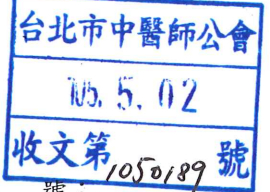 台北市中醫師公會
105. 5. 02
收文第1050189號
號